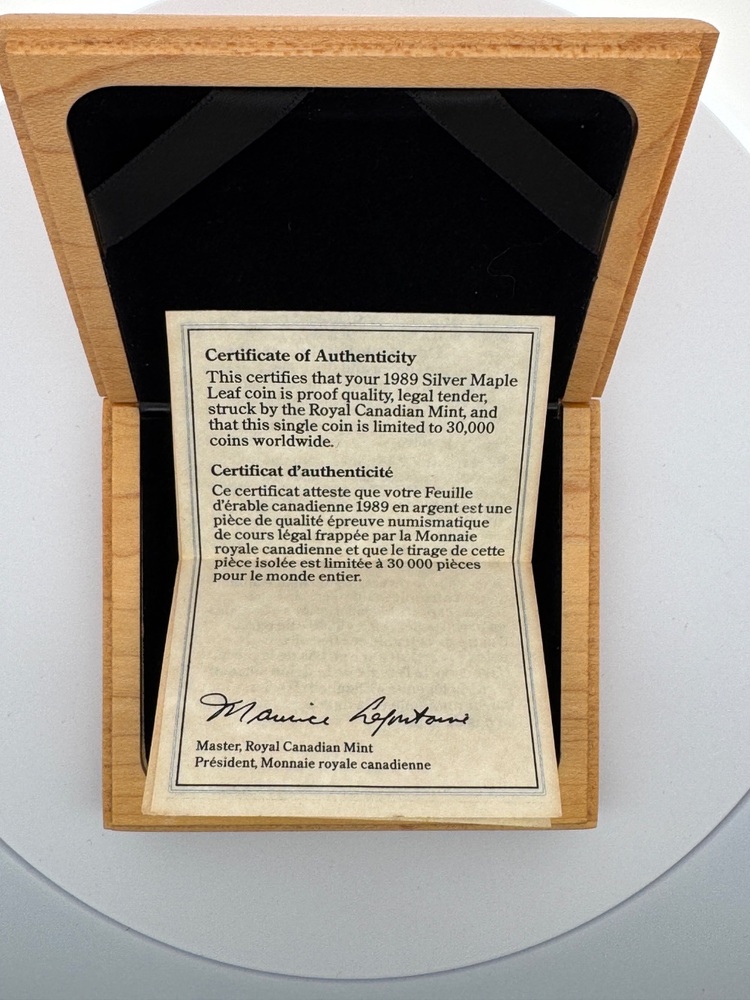 Certificate of Authenticity
This certifies that your 1989 Silver Maple
Leaf coin is proof quality, legal tender,
struck by the Royal Canadian Mint, and
that this single coin is limited to 30,000
coins worldwide.
Certificat d'authenticité
Ce certificat atteste que votre Feuille
d'érable canadienne 1989 en argent est une
pièce de qualité épreuve numismatique
de cours légal frappée par la Monnaie
royale canadienne et que le tirage de cette
pièce isolée est limitée à 30 000 pièces
pour le monde entier.
Maurice Lafontaine
Master, Royal Canadian Mint
Président, Monnaie royale canadienne